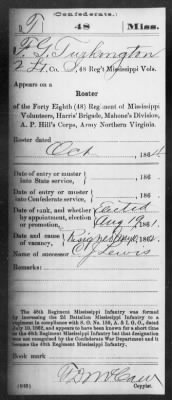 (Confederate.)
T 48 Miss.
F. G. Turkington
2 Lt, Co. , 48 Reg't Mississippi Vols.
Appears on a
Roster
of the Forty Eighth (48) Regiment of Mississippi
Volunteers, Harris' Brigade, Mahone's Division,
A. P. Hill's Corps, Army Northern Virginia.
Roster dated
Oct , 1864
Date of entry or muster
into State service, , 186 .
Date of entry or muster
into Confederate service, , 186 .
Date of rank, and whether
by appointment, election
or promotion, Elected
Aug 19, 1861.
Date and name
of vacancy, Resigned , 186 .
Name of successor C J Lewis
Remarks:
The 48th Regiment Mississippi Infantry was formed
by increasing the 2d Battalion Mississippi Infantry to a
regiment in compliance with S. O. No. , A. & I. G. O., dated
and appears to have been known for a short time
as the Mississippi Infantry but that designation
was not recognized by the Confederate War Department and it
became the 48th Regiment Mississippi Infantry.
Book mark:
Copyist.